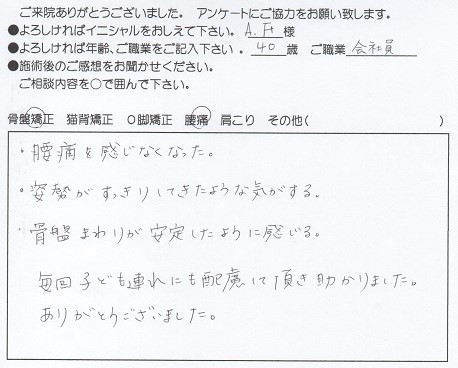 ご来院ありがとうございました。 アンケートにご協力をお願い致します。
●よろしければイニシャルをおしえて下さい。 A.H 様
●よろしければ年齢、ご職業をご記入下さい 。 40 歳 ご職業 会社員
●施術後のご感想をお聞かせください。
ご相談内容を○で囲んで下さい。
骨盤矯正 猫背矯正 O脚矯正 腰痛 肩こり その他( )
・腰痛を感じなくなった。
・姿勢がすっきりしてきたような気がする。
・骨盤まわりが安定したように感じる。
毎回子ども連れにも配慮して頂き助かりました。
ありがとうございました。